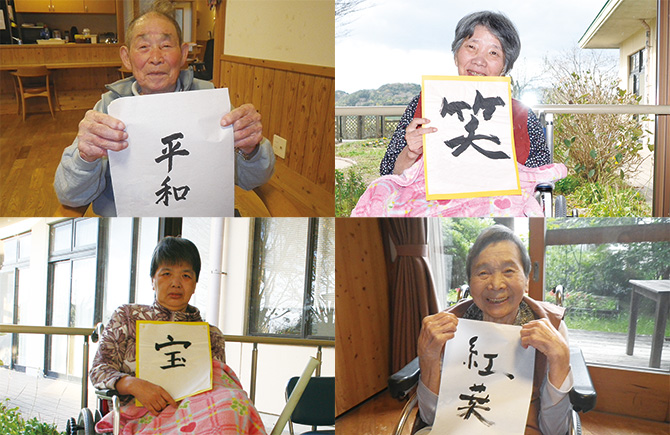 平和
笑
宝
紅葉